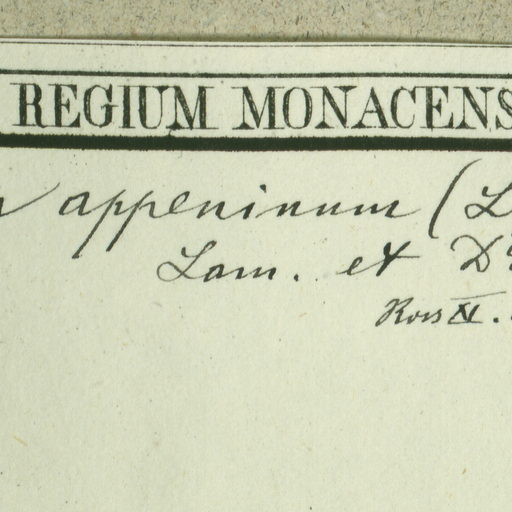 REGIUM MONACENS
appeninum (L
Lam. et D
Ross XI.